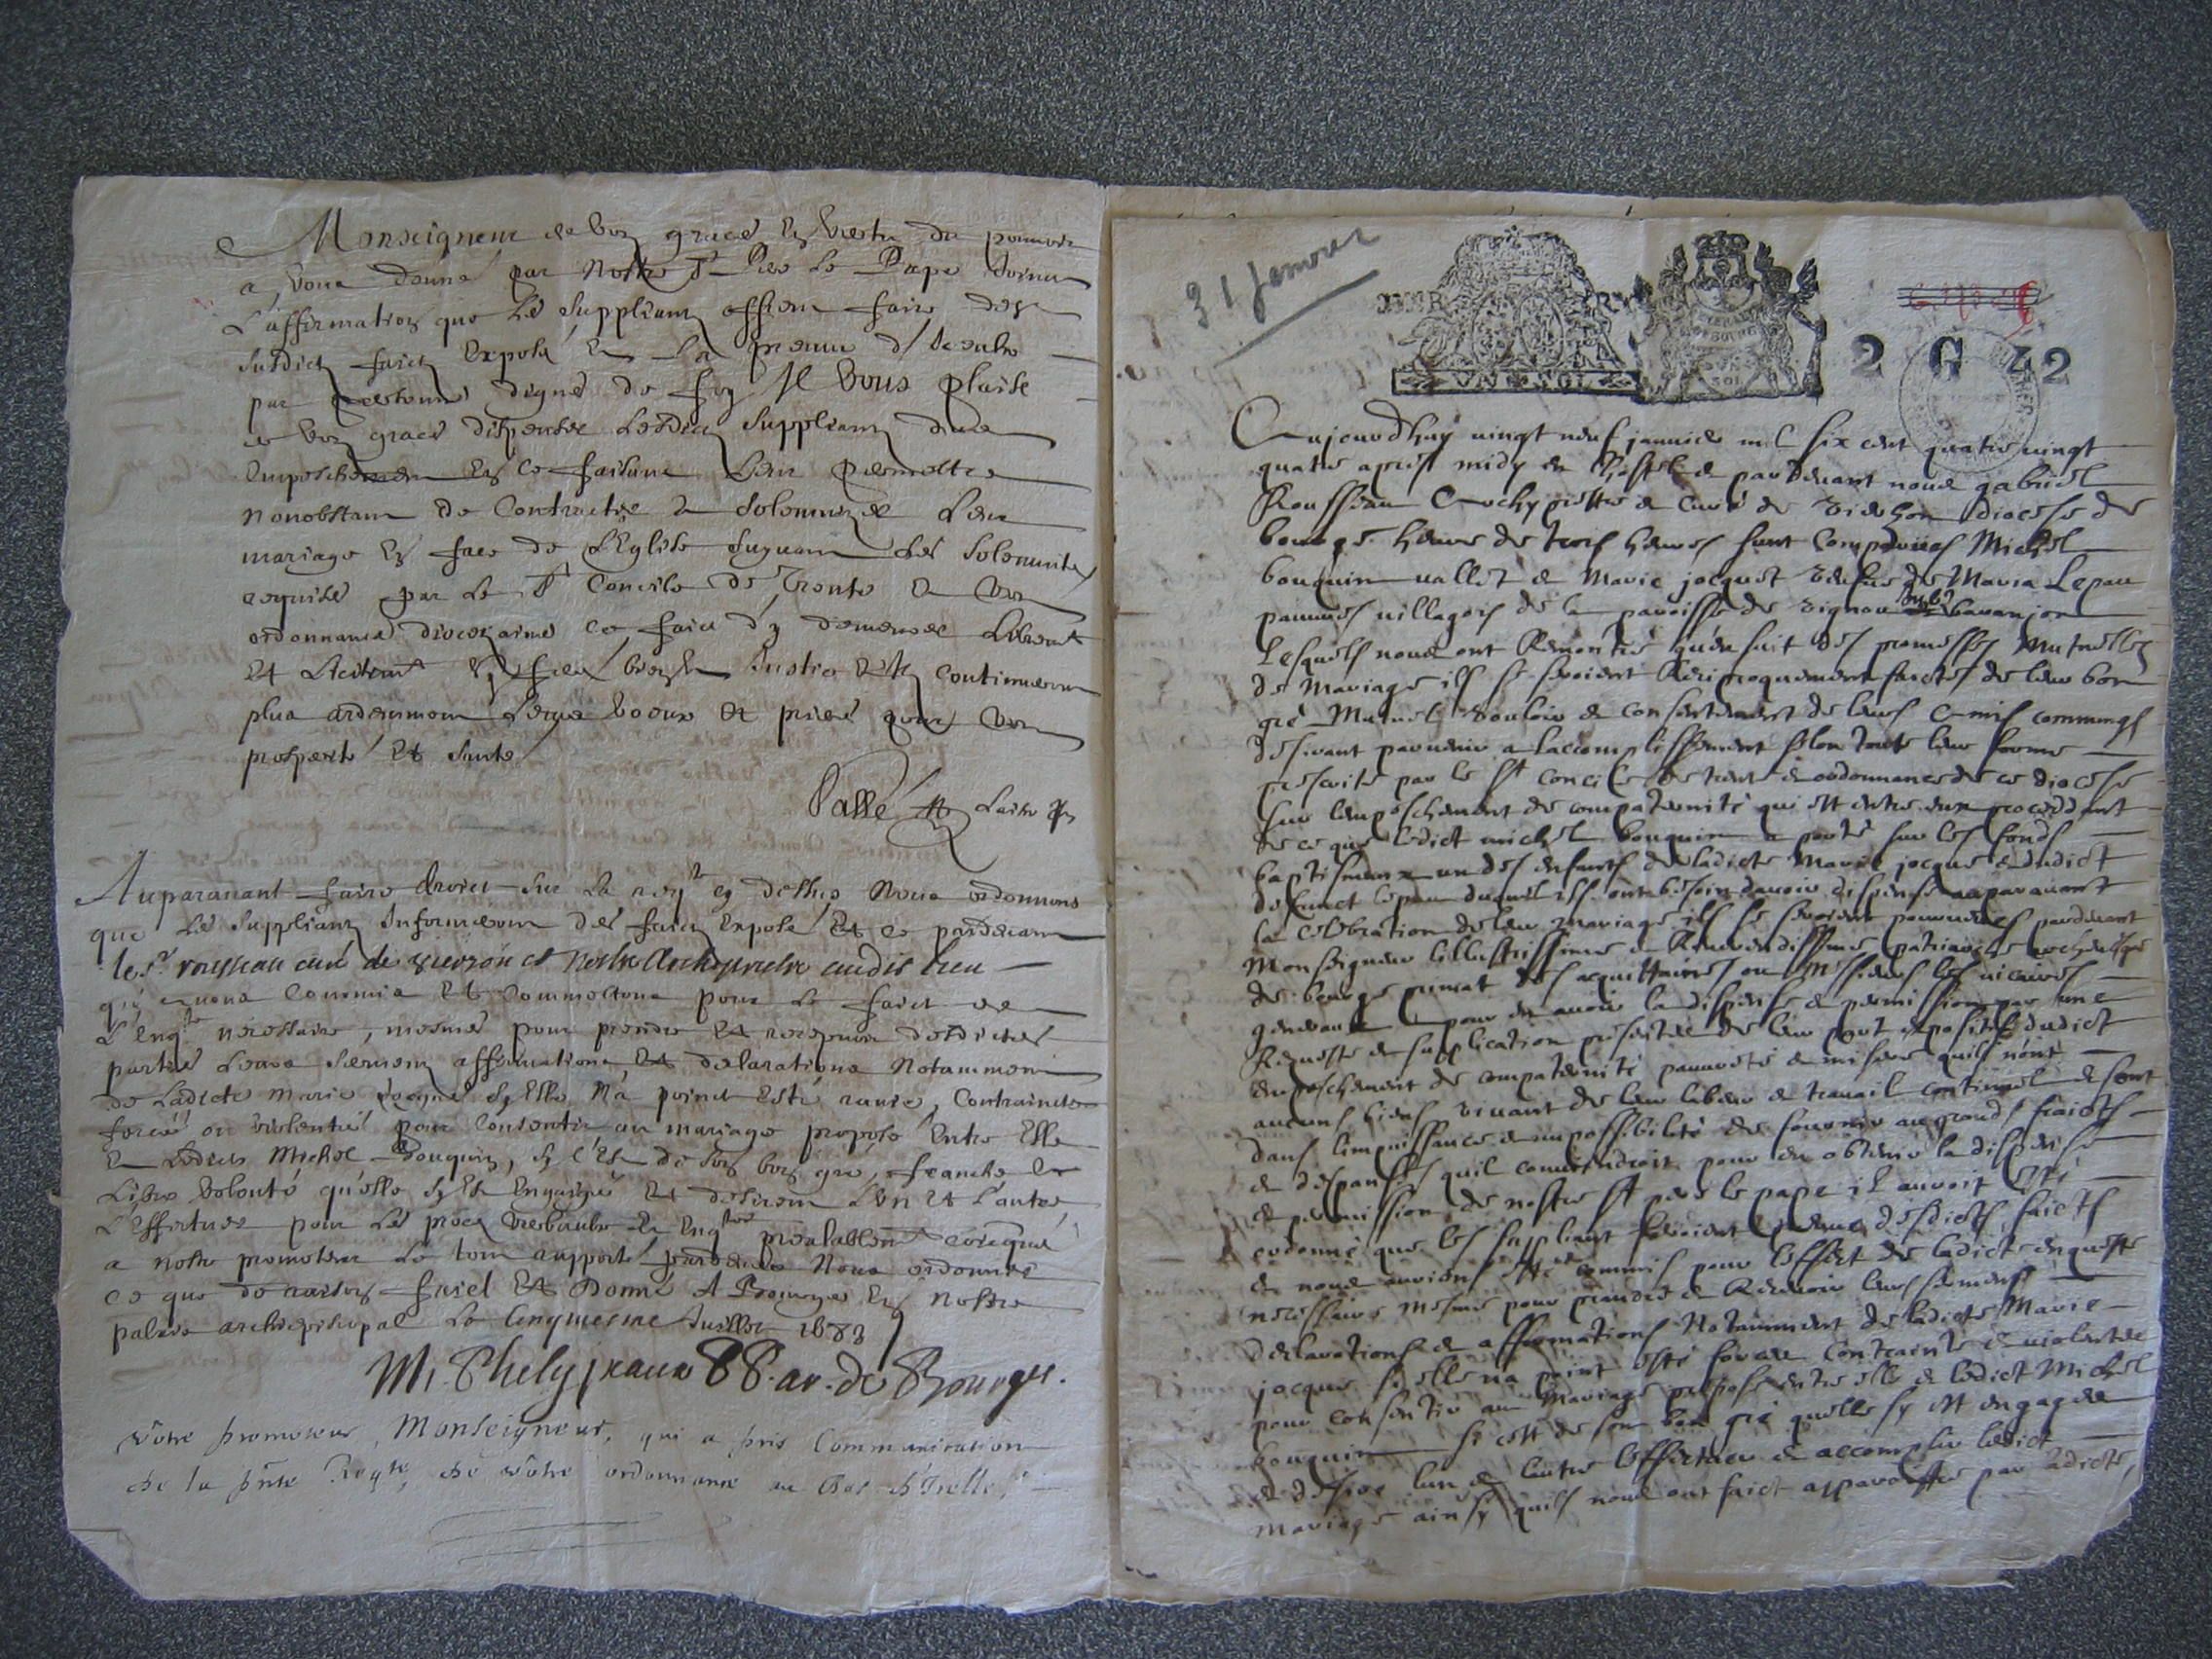 Monseigneur de vos graces En vertu du pouvoir
a vous donné par Nostre St Pere Le Pape
L'affirmation que Les Suppliants offrent faire des
Susdicts faicts Exposé Et La preuve d'Iceulx
par personnes dignes de foy Il vous plaise
de vos graces dispenser Lesdicts Suppliants dudit
Empeschement En ce faisant Leur permettre
Nonobstant de Contracter & Solenniser Leur
mariage En face de L'Eglise Suyvant Les Solennites
requises par Le St Concile de Trente & vos
ordonnances diocezaines ce faict d'y demeurer Librement
Et Licitement Et ferez bien Et Justice Et continueront
plus ardemment Leurs voeux Et prieres pour vostre
prosperité Et Santé
Pallé
Auparavant faire droict Sur La reqte cy dessus Nous ordonnons
que Les Suppliants Informeront des faicts Exposé Et ce pardevant
le sr rousseau curé de vierzon et Nostre Archiprestre audit lieu
que nous Commis Et Commettons pour Le faict de
L'Enqte necessaire, mesmes pour prendre Et recepvoir desdictes
parties Leurs Serments affirmations, Et declarations Notamment
de Ladicte Marie Jacque Sy Elle N'a poinct Esté ravie, Contraincte
forcée ou violentée pour Consentir au mariage proposé Entre Elle
Et Ledict Michel Bouquin, Sy C'Est de Son bon gré, franche Et
Libre Volonté qu'elle s'y Est Engaigée Et desirent L'un Et L'autre
L'Effectuer pour Les proces verbaulx Et Enqtes prealablement Communiqué
a Nostre promoteur Le tout rapporté pardevers Nous ordonner
ce que de raison faict Et Donné A Bourges En Nostre
palais archiepiscopal Le Cinquiesme Juillet 1683
M. Phelypeaux PP. ar. de Bourges.
Vôtre promoteur, Monseigneur, qui a pris Communication
de la pnte Reqte, de vôtre ordonnance au bas d'Icelle,
31 Janvier
UN SOL
2 G 42
Aujourdhuy vingt neuf janvier mil six cent quatre vingt
quatre apres midy en l'hostel & pardevant nous gabriel
Rousseau Archyprestre & Curé de Vierzon diocese de
bourges heure de trois heures sont Comparües Michel
bouquin vallet & Marie jacquet vefve de Lepau
pauvres villagois de la paroisse de vignou sur baranjon
Lesquels nous ont Remontré qu'en suit des promesses Mutuelles
de Mariage ils se seroient Reciproquement faictes de leur bon
gré Mutuel vouloir & consentement de leurs Amis communs
desirant parvenir a l'accomplissement selon toute leur forme
prescrite par le St concile de trente & ordonnances de ce diocese
sur l'empeschement de compaternité qui est entre eux procedant
de ce que ledict michel bouquin a porté sur les fonds
baptismaux un des enfants de ladicte Marie jacque & dudict
defunct lepau duquel ils ont besoin davoir dispense auparavant
la celebration de leur mariage ils se seroient pourvues pardevant
Monseigneur l'illustrissime & Reverendissime patriarche archevesque
de bourges primat des acquittaines ou Messieurs les vicaires
generaux pour en avoir la dispense & permission par une
Requeste & supplication presentée de leur part expositive dudict
empeschement de compaternité pauvreté & misere quils n'ont
aucuns biens vivant de leur labeur & travail continuel & sont
dans l'impuissance & impossibilité de fournir au grands fraicts
& despances quil conviendroit pour en obtenir la dispense
& permission de nostre St pere le pape il auroit esté
ordonné que les suppliant feroient preuve desdicts faicts
& nous aurions esté commis pour l'effet de ladicte enqueste
necessaire mesme pour prendre & Recevoir leurs serments
declarations & affirmations Notamment de ladicte Marie
jacque si elle na point esté forcée Contrainte & violentée
pour consentir au Mariage proposé entre elle & ledict Michel
bouquin si cest de son bon gré quelle sy est engagée
& desire lun & lautre l'effectuer & accomplir ledict
mariage ainsy quils nous ont faict apparoistre par ladicte